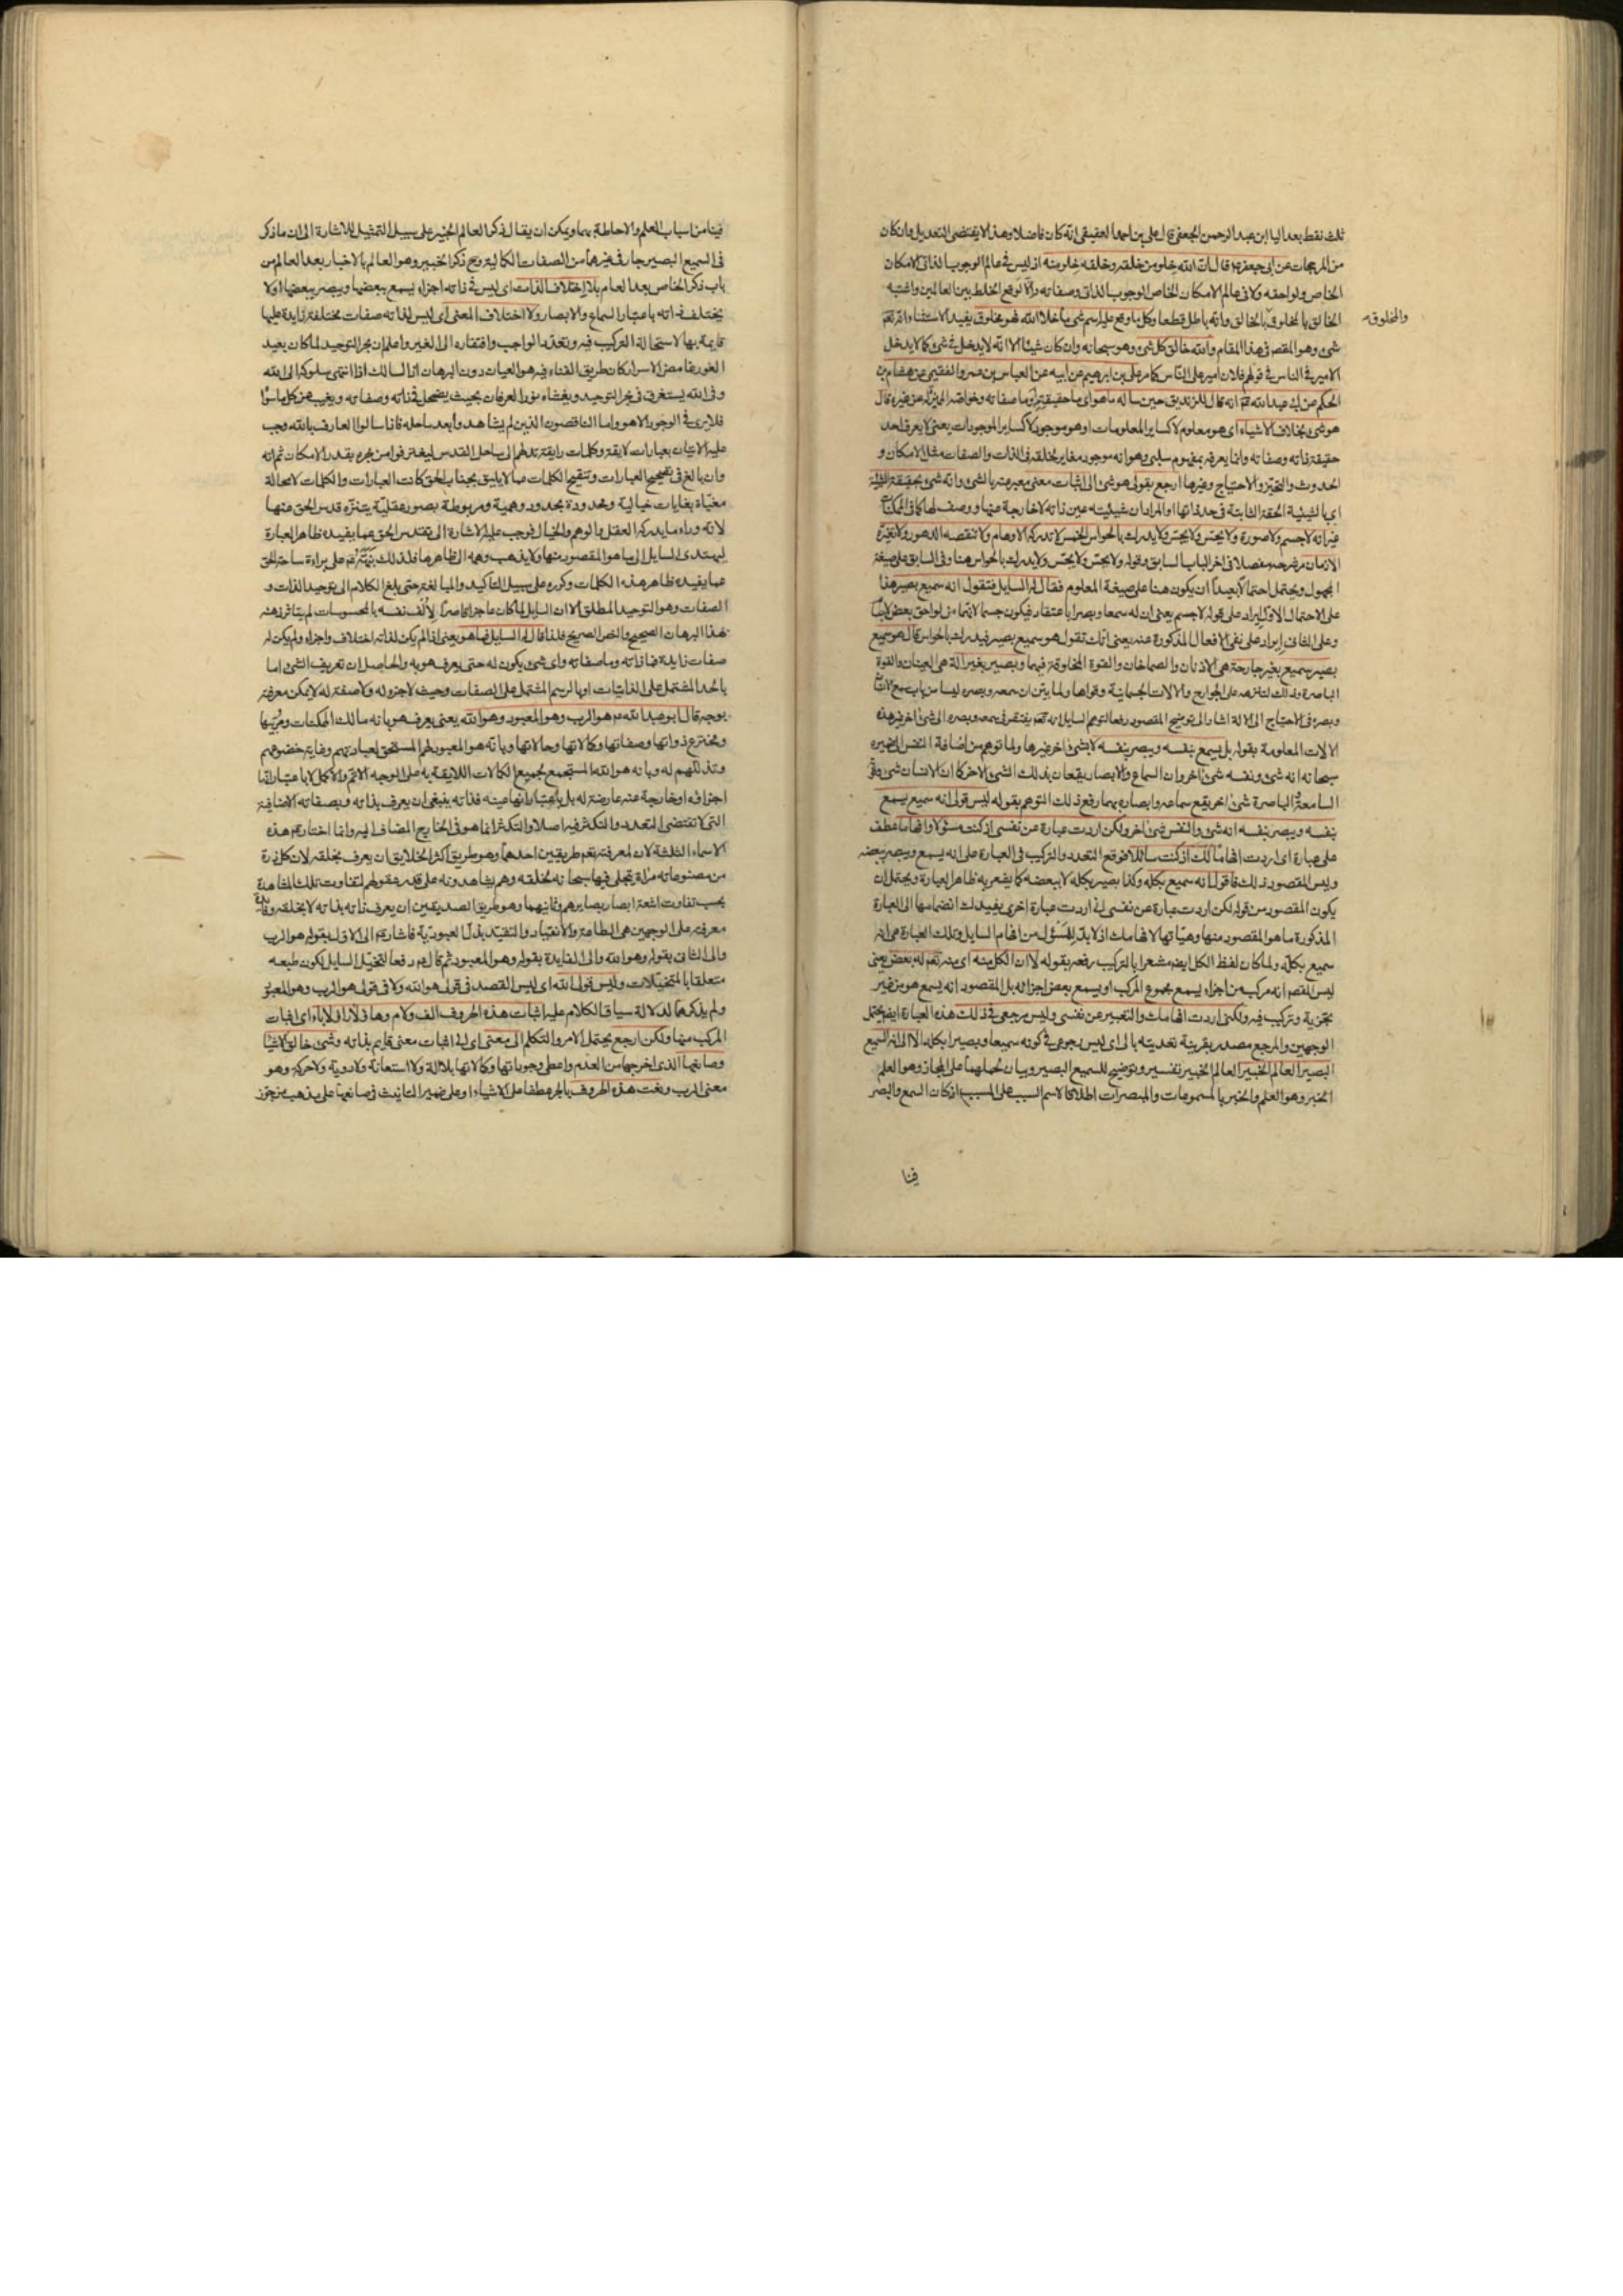 ثلث نقط بعد اليا ابن عبد الرحمن الجعفى قال على بن احمد العقيقى انه كان فاضلا وهذا لا يقتضى التعديل وان كان
من المرجحات عن ابى جعفر ع قال ان الله خلو من خلقه وخلقه خلو منه اذ ليس فى عالم الوجوب الذاتى الامكان
الخاص ولواحقه ولا فى عالم الامكان الخاص الوجوب الذاتى وصفاته والا لوقع الخلط بين العالمين واشتبه
الخالق بالمخلوق بالخالق وانه باطل قطعا وكل ما وقع عليه اسم شىء ما خلا الله فهو مخلوق بقيد الاستثناء انه تعم
والمخلوق
شىء وهو المقصم فى هذا المقام والله خالق كل شىء وهو سبحانه وان كان شيئا الا انه لا يدخل فى شىء كما لا يدخل
الامير فى الناس فى قولهم فلان امير على الناس كما مر على بن ابرهيم عن ابيه عن العباس بن عمرو الفقيمى عن هشام بن
الحكم عن ابى عبد الله ع انه قال للزنديق حين ساله ما هو اى ما حقيقته او ما صفاته وخواصه المميزة له عن غيره قال
هو شىء بخلاف الاشياء اى هو معلوم لا كساير المعلومات او هو موجود لا كساير الموجودات يعنى لا يعرف احد
حقيقة ذاته وصفاته وانما يعرفه بمفهوم سلبى وهو انه موجود مغاير لخلقه فى الذات والصفات مثل الامكان و
الحدوث والتحيز والاحتياج وغيرها ارجع بقولى هو شىء الى اثبات معنى معبر عنه بالشىء وانه شىء بحقيقة الشيئية
اى بالشيئية الحقة الثابتة فى حد ذاتها والمراد ان شيئيته عين ذاته لا خارجة عنها ووصف لها كما فى الممكنات
غير انه لا جسم ولا صورة ولا يحس ولا يجس ولا يدرك بالحواس الخمس لا تدركه الاوهام ولا تنقصه الدهور ولا تغيره
الازمان مر شرحه مفصلا فى اخر الباب السابق وقوله ولا يحس ولا يجس ولا يدرك بالحواس هنا وفى السابق على صيغة
المجهول ويحتمل احتمالا بعيدا ان يكون هنا على صيغة المعلوم فقال له السايل فتقول انه سميع بصير هذا
على الاحتمال الاول ايراد على قوله لا جسم يعنى ان له سمعا وبصرا باعتقادك فيكون جسما لانهما من لواحق بعض
وعلى الثانى ايراد على نفى الافعال المذكورة عنه يعنى انك تقول هو سميع بصير فيدرك بالحواس قال هو سميع
بصير سميع بغير جارحة هى الاذنان والصماخان والقوة المخلوقة فيهما وبصير بغير آلة هى العينان والقوة
الباصرة وذلك لتنزهه على الجوارح والالات الجسمانية وقواها ولما بين ان سمعه وبصره ليسا من باب سمع الانسان
وبصره فى الاحتياج الى الالة اشار الى توضيح المقصود رفعا لتوهم السايل انه تعم يفتقر فى سمعه وبصره الى شىء اخر غير هذه
الالات المعلومة بقوله بل يسمع بنفسه ويبصر بنفسه لا بشىء اخر غيرها ولما توهم من اضافة النفس الى ضميره
سبحانه انه شىء ونفسه شىء اخر وان السماع والابصار يقعان بذلك الشىء الاخر كما ان الانسان شىء
السامعة والباصرة شىء اخر يقع سماعه وابصاره بهما رفع ذلك التوهم بقوله ليس قولى انه سميع يسمع
بنفسه ويبصر بنفسه انه شىء والنفس شىء اخر ولكن اردت عبارة عن نفسى اذ كنت مسئولا وافهاما عطف
على عبارة اى اردت افهاما لك اذ كنت سائلا فوقع التعدد والتركيب فى العبارة على انه يسمع ويبصر ببعضه
وليس المقصود ذلك فاقول انه سميع بكله وكذا بصير بكله لا ببعضه كما يشعر به ظاهر العبارة ويحتمل ان
يكون المقصود من قوله لكن اردت عبارة عن نفسى انى اردت عبارة اخرى يفيدك انضمامها الى العبارة
المذكورة ما هو المقصود منها وهياتها لافهامك اذ لا بد للمسئول من افهام السايل وتلك العبارة هى انه
سميع بكله ولما كان لفظ الكل ايضم مشعرا بالتركيب رفعه بقوله لا ان الكل منه اى منه تعم له بعض يعنى
ليس المقصم انه مركب من اجزاء يسمع بمجموع المركب او يسمع ببعض اجزائه بل المقصود انه يسمع هو من غير
تجزية وتركيب فيه ولكنى اردت افهامك والتعبير عن نفسى وليس مرجعى فى ذلك هذه العبارة ايضم يحتمل
الوجهين والمرجع مصدر بقرينة تعديته بالى اى ليس رجوعى فى كونه سميعا وبصيرا بكله الا الى انه السميع
البصير العالم الخبير العالم الخبير تفسير وتوضيح للسميع البصير وبيان لحملهما على المجاز وهو العلم
الخبر وهو العلم والخبر بالمسموعات والمبصرات اطلاقا لاسم السبب على المسبب اذ كان السمع والبصر
فينا
فينا من اسباب العلم والاحاطة بهما ويمكن ان يقال ذكر العالم الخبير على سبيل التمثيل للاشارة الى ان ما ذكر
فى السميع البصير جار فى غيرهما من الصفات الكمالية وح ذكر الخبير وهو العالم بالاخبار بعد العالم من
باب ذكر الخاص بعد العام بلا اختلاف الذات اى ليس فى ذاته اجزاء يسمع ببعضها ويبصر ببعضها او لا
يختلف ذاته باعتبار السماع والابصار ولا اختلاف المعنى اى ليس لذاته صفات مختلفة زايدة عليها
قايمة بها لاستحالة التركيب فيه وتعدد الواجب وافتقاره الى الغير واعلم ان بحر التوحيد لما كان بعيد
الغور غامض الاسرار كان طريق الفناء فيه هو العيان دون البرهان اذ السالك اذا انتهى سلوكه الى الله
وفى الله يستغرق فى بحر التوحيد ويغشاه نور العرفان بحيث يضمحل فى ذاته وصفاته ويغيب عن كل ما سواه
فلا يرى فى الوجود الا هو واما الناقصون الذين لم يشاهدوا بعد ساحله فاذا سالوا العارف بالله وجب
عليه الاتيان بعبارات لايقة وكلمات رايقة تدلهم الى ساحل القدس ليغترفوا من بحره بقدر الامكان ثم انه
وان بالغ فى تصحيح العبارات وتنقيح الكلمات عما لا يليق بجناب الحق كانت العبارات والكلمات لا محالة
مغياة بغايات خيالية ومحدودة بحدود وهمية ومربوطة بصور عقلية يتنزه قدس الحق عنها
لانه وراء ما يدركه العقل والوهم والخيال فوجب عليه الاشارة الى تقدس الحق عما يفيده ظاهر العبارة
ليهتدى السايل الى ما هو المقصود منها ولا يذهب وهمه الى ظاهرها فلذلك نبه ع على براءة ساحة الحق
عما يفيده ظاهر هذه الكلمات وكرره على سبيل التاكيد والمبالغة حتى بلغ الكلام الى توحيد الذات و
الصفات وهو التوحيد المطلق الا ان السايل لما كان عاجزا قاصرا لالف نفسه بالمحسوسات لم يتاثر ذهنه
بهذا البرهان الصحيح والنص الصريح فلذا قال له السايل فما هو يعنى اذا لم يكن لذاته اختلاف واجزاء ولم يكن له
صفات زايدة فما ذاته وما صفاته واى شىء يكون له حتى يعرف هو به والحاصل ان تعريف الشىء اما
بالحد المشتمل على الذاتيات او بالرسم المشتمل على الصفات وحيث لا جزء له ولا صفة له لا يمكن معرفته
بوجه قال ابو عبد الله ع هو الرب وهو المعبود وهو الله يعنى يعرف هو بانه مالك الممكنات ومربيها
ومخترع ذواتها وصفاتها وكمالاتها وحالاتها وبانه هو المعبود لهم المستحق لعبادتهم وغاية خضوعهم
وتذللهم له وبانه هو الله المستجمع بجميع الكمالات اللايقة به على الوجه الاتم والاكمل لا باعتبار انها
اجزاؤه او خارجة عنه عارضة له بل باعتبار انها عينه فذاته ينبغى ان يعرف بذاته وبصفاته الاضافية
التى لا تقتضى التعدد والتكثر فيه اصلا والتكثر انما هو فى الخارج المضاف اليه وانما اختار ع هذه
الاسماء الثلثة لان لمعرفته تعم طريقين احدهما وهو طريق اكثر الخلايق ان يعرف بخلقه لان كل ذرة
من مصنوعاته مرآة تجلى فيها سبحانه لخلقه وهم يشاهدونه على قدر عقولهم لتفاوت تلك المشاهدة
بحسب تفاوت اشعة ابصار بصايرهم وثانيهما وهو طريق الصديقين ان يعرف ذاته بذاته لا بخلقه وفايدة
معرفته على الوجهين هى الطاعة والانقياد والتقيد بذل العبودية فاشار ع الى الاول بقوله هو الرب
والى الثانى بقوله وهو الله والى الفايدة بقوله وهو المعبود ثم قال ع دفعا لتخيل السايل لكون طبعه
متعلقا بالمتخيلات وليس قولى الله اى ليس القصد فى قولى هو الله ولا فى قولى هو الرب وهو المعبود
ولم يذكرهما لدلالة سياق الكلام عليه اثبات هذه الحروف الف ولام وهاء ولا راء ولا باء اى اثبات
المركب منها ولكن ارجع يحتمل الامر والتكلم الى معنى اى الى اثبات معنى قايم بذاته وشىء خالق الاشياء
وصانعها الذى اخرجها من العدم واعطى وجوداتها وكمالاتها بلا آلة ولا استعانة ولا روية ولا حركة وهو
معنى الرب ونعت هذه الحروف بالجر عطفا على الاشياء او على ضمير التانيث فى صانعها على مذهب من جوز